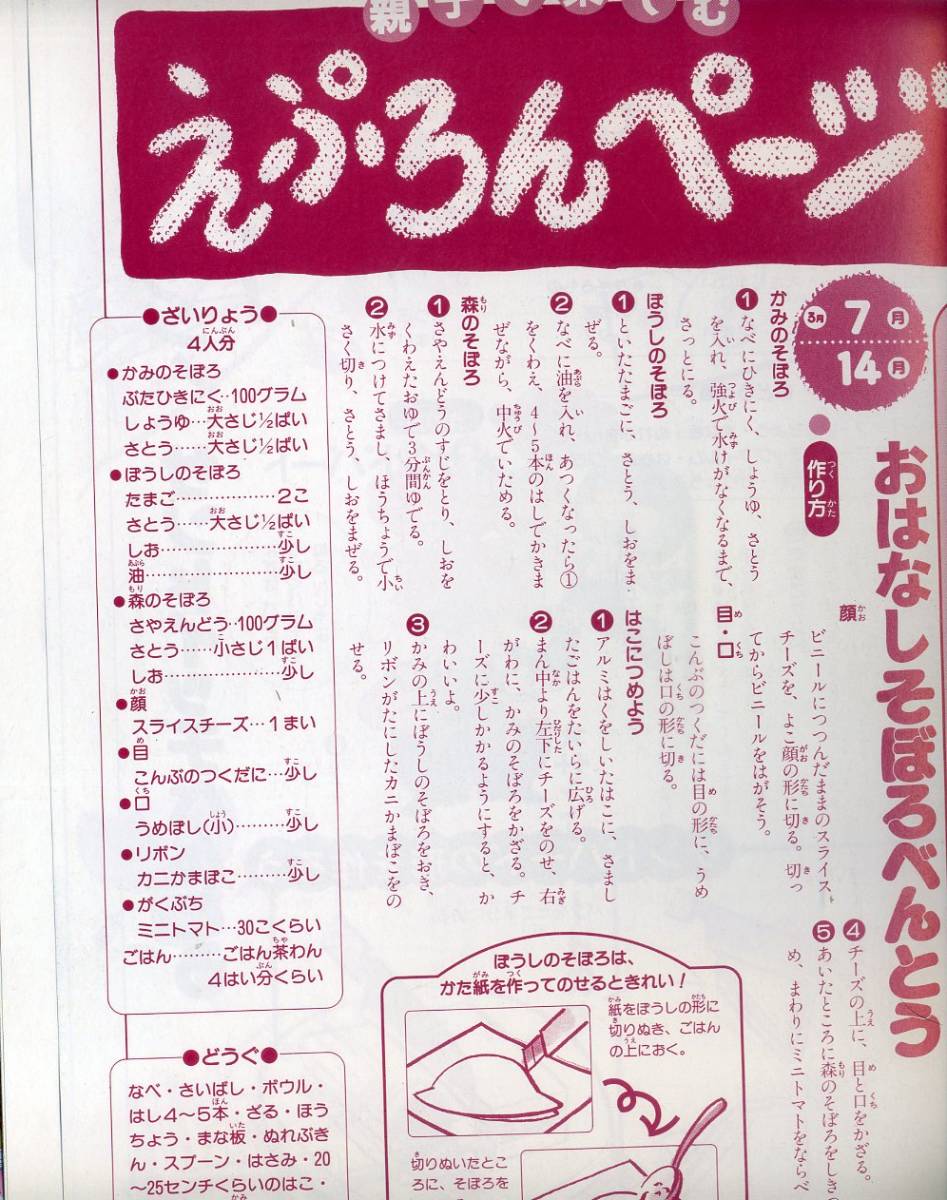 親子で楽しむ
えぷろんページ
3月
7月
14月
おはなしそぼろべんとう
作り方
かみのそぼろ
❶なべにひきにく、しょうゆ、さとう
を入れ、強火で水けがなくなるまで、
さっとにる。
ぼうしのそぼろ
❶といたたまごに、さとう、しおをま
ぜる。
❷なべに油を入れ、あつくなったら①
をくわえ、4〜5本のはしでかきま
ぜながら、中火でいためる。
森のそぼろ
❶さやえんどうのすじをとり、しおを
くわえたおゆで3分間ゆでる。
❷水につけてさまし、ほうちょうで小
さく切り、さとう、しおをまぜる。
顔
ビニールにつつんだままのスライス
チーズを、よこ顔の形に切る。切っ
てからビニールをはがそう。
目・口
こんぶのつくだには目の形に、うめ
ぼしは口の形に切る。
はこにつめよう
❶アルミはくをしいたはこに、さまし
たごはんをたいらに広げる。
❷まん中より左下にチーズをのせ、右
がわに、かみのそぼろをかざる。チ
ーズに少しかかるようにすると、か
わいいよ。
❸かみの上にぼうしのそぼろをおき、
リボンがたにしたカニかまぼこをの
せる。
❹チーズの上に、目と口をかざる。
❺あいたところに森のそぼろをしきつ
め、まわりにミニトマトをならべ
●ざいりょう●
4人分
●かみのそぼろ
ぶたひきにく…100グラム
しょうゆ…大さじ½ぱい
さとう……大さじ½ぱい
●ぼうしのそぼろ
たまご……………2こ
さとう……大さじ½ぱい
しお………………少し
油…………………少し
●森のそぼろ
さやえんどう…100グラム
さとう……小さじ1ぱい
しお………………少し
●顔
スライスチーズ…1まい
●目
こんぶのつくだに…少し
●口
うめぼし(小)………少し
●リボン
カニかまぼこ………少し
●がくぶち
ミニトマト…30こくらい
ごはん………ごはん茶わん
4はい分くらい
●どうぐ●
なべ・さいばし・ボウル・
はし4〜5本・ざる・ほう
ちょう・まな板・ぬれぶき
ん・スプーン・はさみ・20
〜25センチくらいのはこ・
ぼうしのそぼろは、
かた紙を作ってのせるときれい!
紙をぼうしの形に
切りぬき、ごはん
の上におく。
切りぬいたとこ
ろに、そぼろを